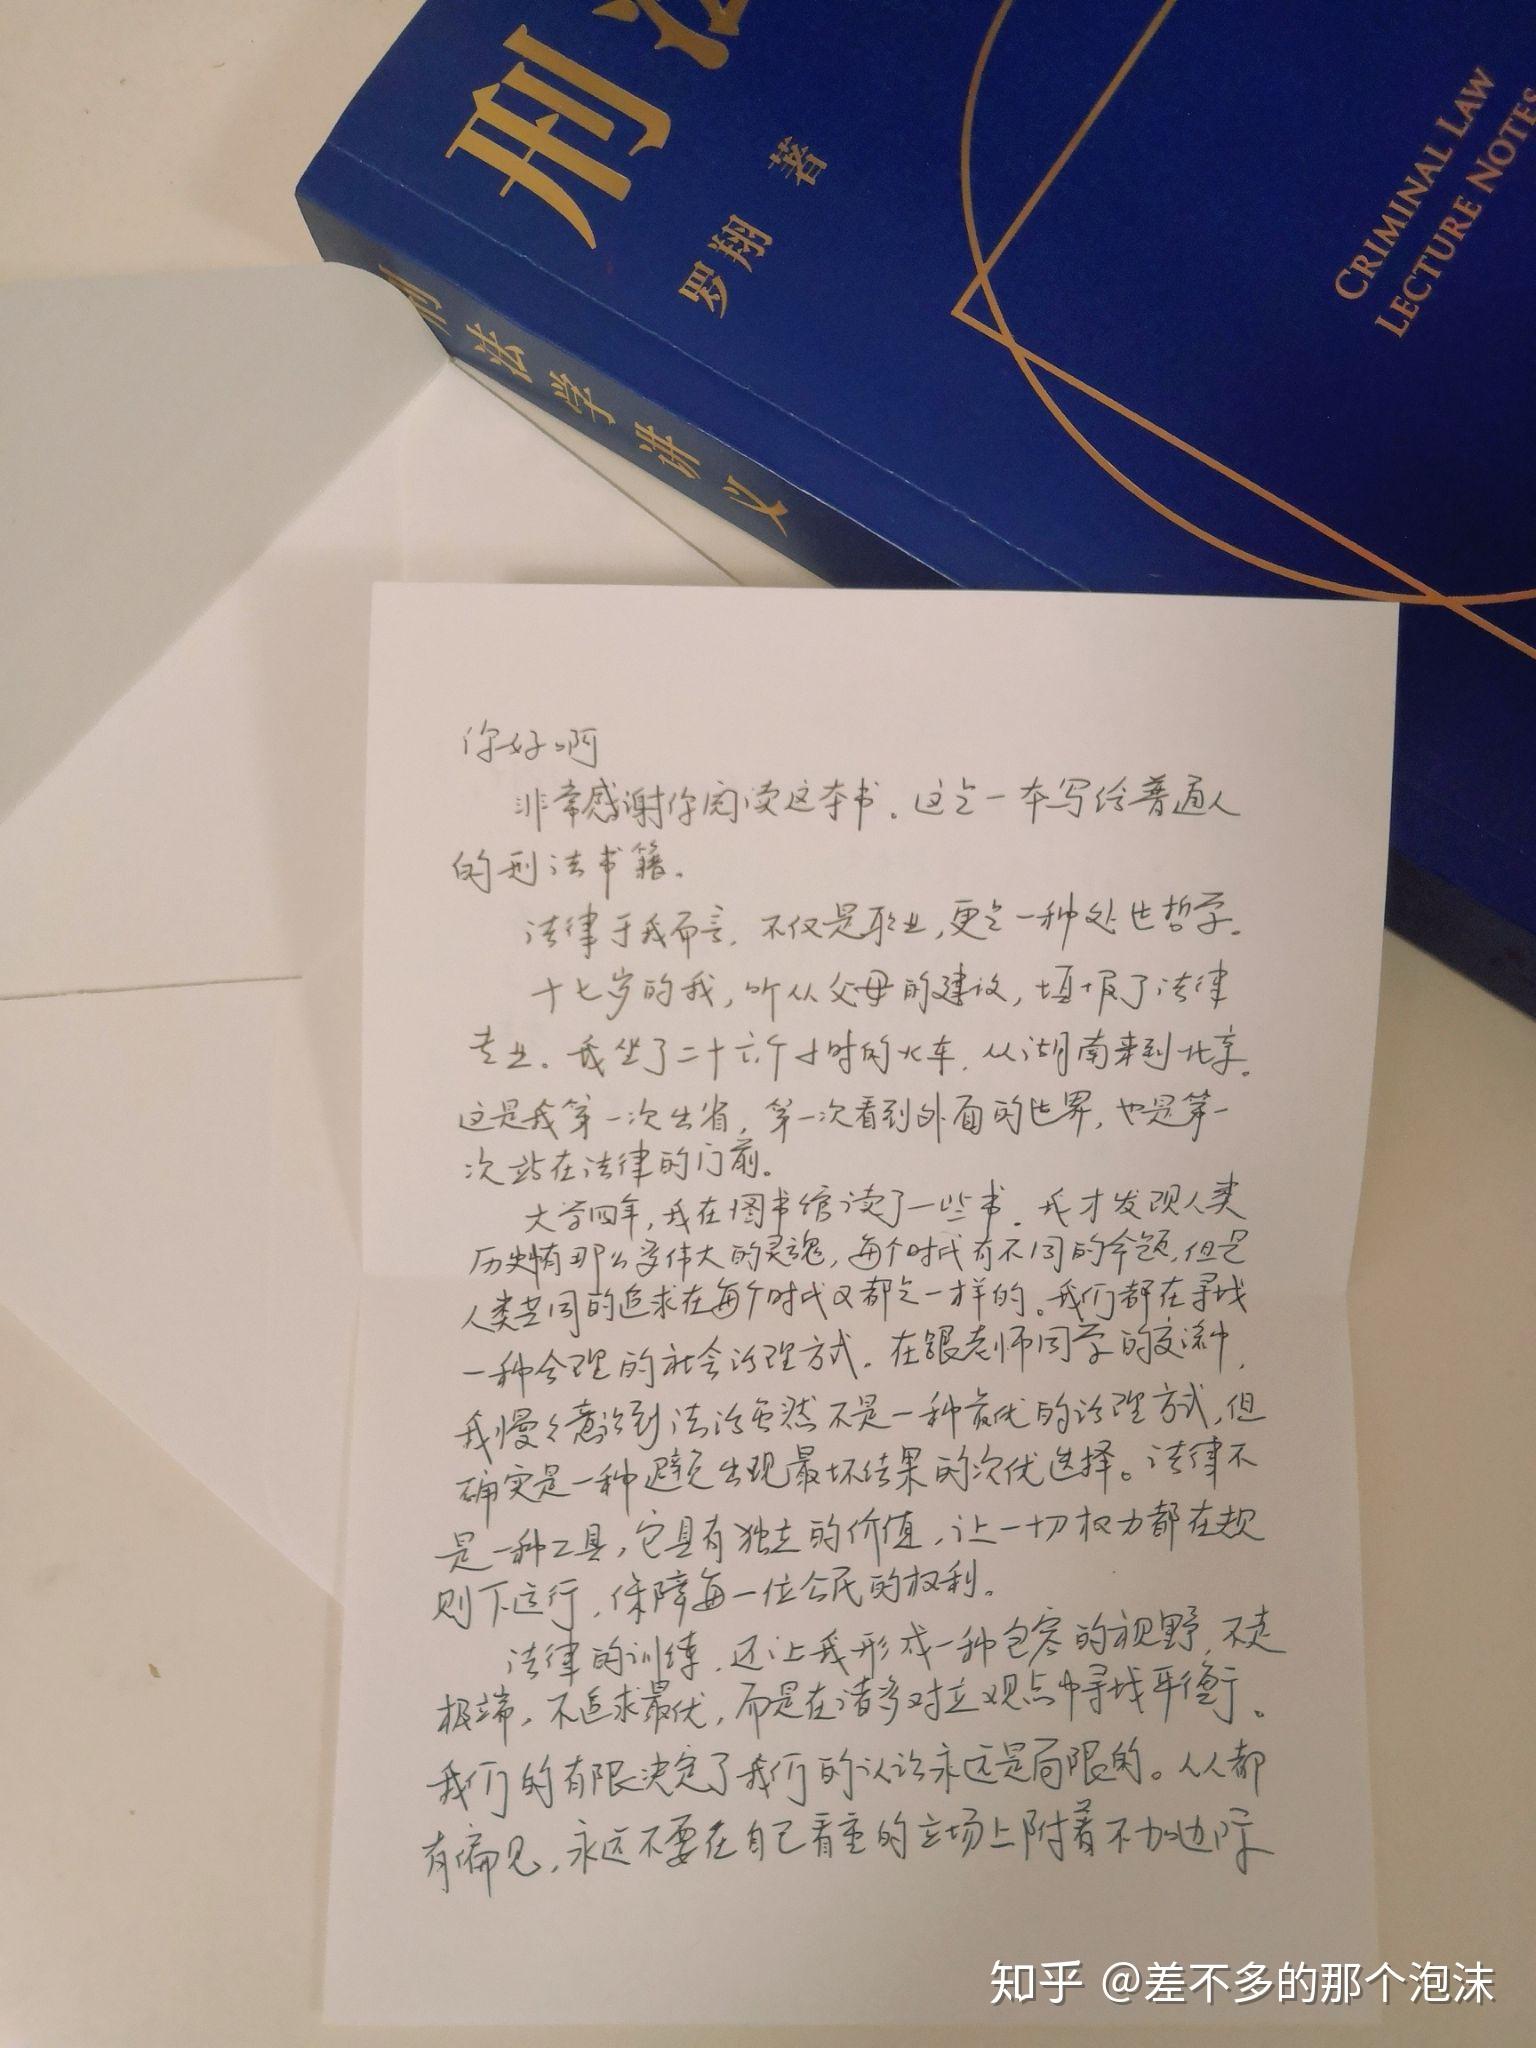 刑法
罗翔 著
CRIMINAL LAW
LECTURE NOTES
刑法学讲义
你好啊
非常感谢你阅读这本书。这是一本写给普通人
的刑法书籍。
法律于我而言，不仅是职业，更是一种处世哲学。
十七岁的我，听从父母的建议，填报了法律
专业。我坐了二十六个小时的火车，从湖南来到北京。
这是我第一次出省，第一次看到外面的世界，也是第一
次站在法律的门前。
大学四年，我在图书馆读了一些书，我才发现人类
历史有那么多伟大的灵魂，每个时代有不同的命题，但是
人类共同的追求在每个时代又都是一样的。我们都在寻找
一种合理的社会治理方式。在跟老师同学的交流中，
我慢慢意识到法治虽然不是一种最优的治理方式，但
确实是一种避免出现最坏结果的次优选择。法律不
是一种工具，它具有独立的价值，让一切权力都在规
则下运行，保障每一位公民的权利。
法律的训练，还让我形成一种包容的视野，不走
极端，不追求最优，而是在诸多对立观点中寻找平衡。
我们的有限决定了我们的认识永远是局限的。人人都
有偏见，永远不要在自己看重的立场上附着不加边际
知乎 @差不多的那个泡沫